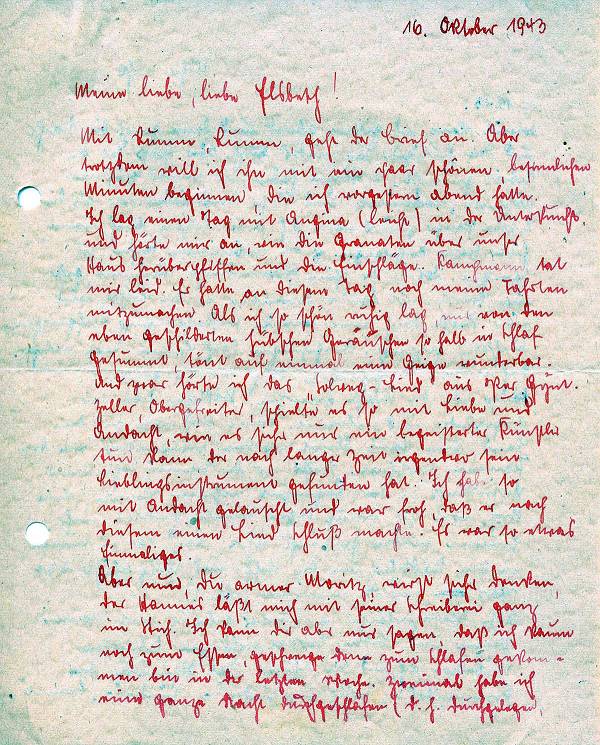 16. Oktober 1943
Meine liebe, liebe Elsbeth!
Mit Kumm, Kumm, geht der Brief an. Aber
trotzdem will ich ihn mit ein paar schönen, besinnlichen
Minuten beginnen, die ich vorgestern abend hatte.
Ich lag einen Tag mit Angina (leicht) in der Unterkunft,
und hörte mir an, wie die Granaten über unser
Haus herüberpfiffen und die Einschläge. Kaufmann tat
mir leid. Er hatte an diesem Tag noch meine Fahrten
mitzumachen. Als ich so schön ruhig lag, und von den
eben geschilderten hübschen Geräuschen so halb in Schlaf
gesummt, tönt auf einmal eine Geige wunderbar.
Und zwar hörte ich das "Solveig-Lied" aus Peer Gynt.
Zeller, Obergefreiter, spielte es so mit Liebe und
Andacht, wie es sicher nur ein begeisterter Künstler
tun kann der nach langer Zeit irgendwo sein
Lieblingsinstrument gefunden hat. Ich habe so
mit Andacht gelauscht und war froh, daß er nach
diesem einen Lied Schluß machte. Es war so etwas
Einmaliges.
Aber nun, Du armer Moritz, wirst sicher denken,
der Hannes läßt mich mit seiner Schreiberei ganz
im Stich. Ich kann Dir aber nur sagen, daß ich kaum
noch zum Essen, geschweige denn zum Schlafen gekom-
men bin in der letzten Woche. Zweimal habe ich
eine ganze Nacht durchgeschlafen (d. h. durchgelegen,